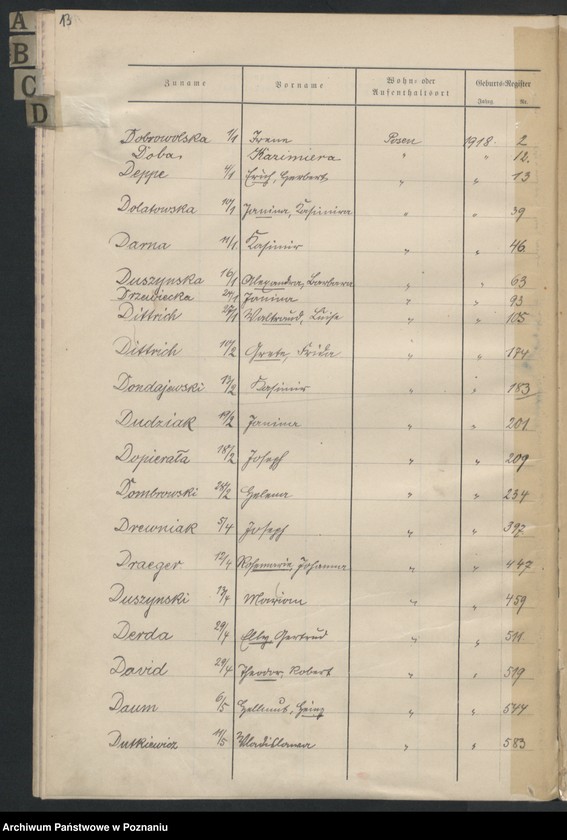 A
B
C
D
13
Zuname Vorname Wohn- oder Aufenthaltsort Geburts-Register
Jahrg. Nr.
Dobrowolska 1/1 Irene Posen 1918. 2
Doba, Kazimiera " " 12.
Deppe 4/1 Erich, Herbert " " 13
Dolatowska 10/1 Janina, Kasimira " " 39
Darna 11/1 Kasimir " " 46
Duszynska 16/1 Alexandra, Barbara " " 63
Drzubiecka 24/1 Janina " " 93
Dittrich 27/1 Waltraud, Luise " " 105
Dittrich 10/2 Grete, Frida " " 174
Dondajewski 13/2 Kasimir " " 183
Dudziak 19/2 Janina " " 201
Dopierała 18/2 Joseph " " 209
Dombrowski 28/2 Helena " " 234
Drewniak 5/4 Joseph " " 397
Draeger 12/4 Rosemarie, Johanna " " 447
Duszynski 17/4 Marian " " 459
Derda 29/4 Elly, Gertrud " " 511
David 29/4 Theodor, Robert " " 519
Daum 6/5 Hellmut, Heinz " " 544
Dutkiewicz 11/5 Wladislawa " " 583
Archiwum Państwowe w Poznaniu